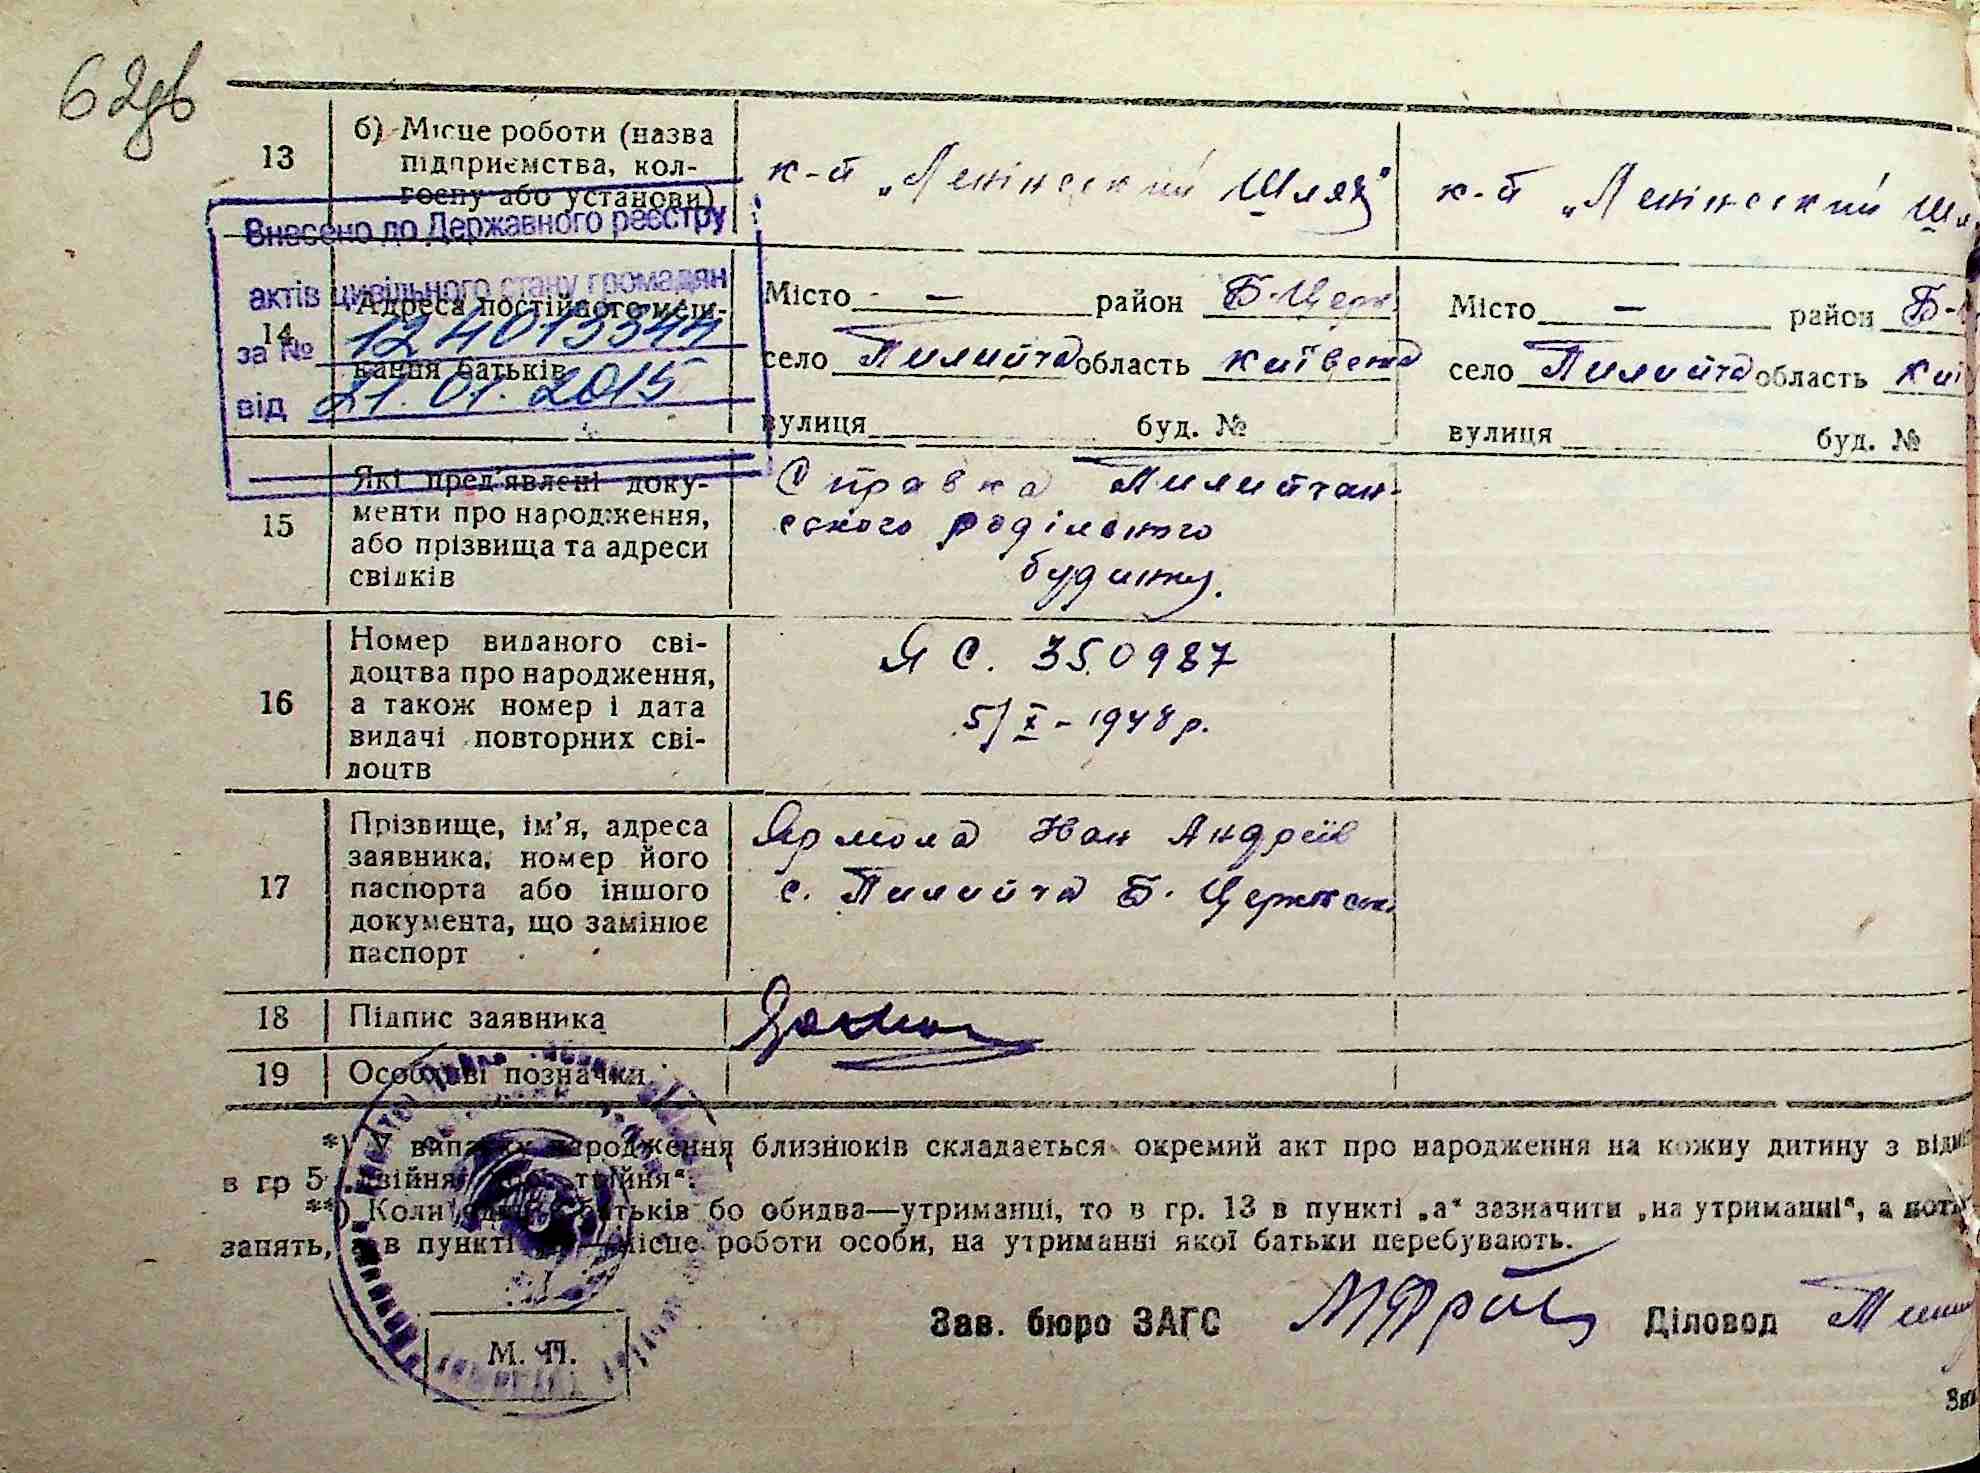 62 зв
13
б) Місце роботи (назва
підприємства, кол-
госпу або установи)
к-п „Ленінський Шлях"
к-п „Ленінський Шл
Внесено до Державного реєстру
актів цивільного стану громадян
за №
від 21.01.2015
14
Адреса постійного меш-
кання батьків
Місто — район Б-Церк.
село Пилипча область Київська
вулиця буд. №
Місто — район Б-
село Пилипча область Киї
вулиця буд. №
15
Які пред'явлені доку-
менти про народження,
або прізвища та адреси
свідків
Справка Пилипчан-
ського родільного
будинку.
16
Номер виданого сві-
доцтва про народження,
а також номер і дата
видачі повторних сві-
доцтв
ЯС. 350987
5/X-1948р.
17
Прізвище, ім'я, адреса
заявника, номер його
паспорта або іншого
документа, що замінює
паспорт
Ярмола Іван Андріїв
с. Пилипча Б. Церківськ.
18
Підпис заявника
19
Особливі позначки
*) У випадку народження близнюків складається окремий акт про народження на кожну дитину з
в гр 5 „двійня" або „трійня".
**) Коли один з батьків бо обидва—утриманці, то в гр. 13 в пункті „а" зазначити „на утриманні", а
запять, а в пункті місце роботи особи, на утриманні якої батьки перебувають.
Зав. бюро ЗАГС
Діловод
М. П.